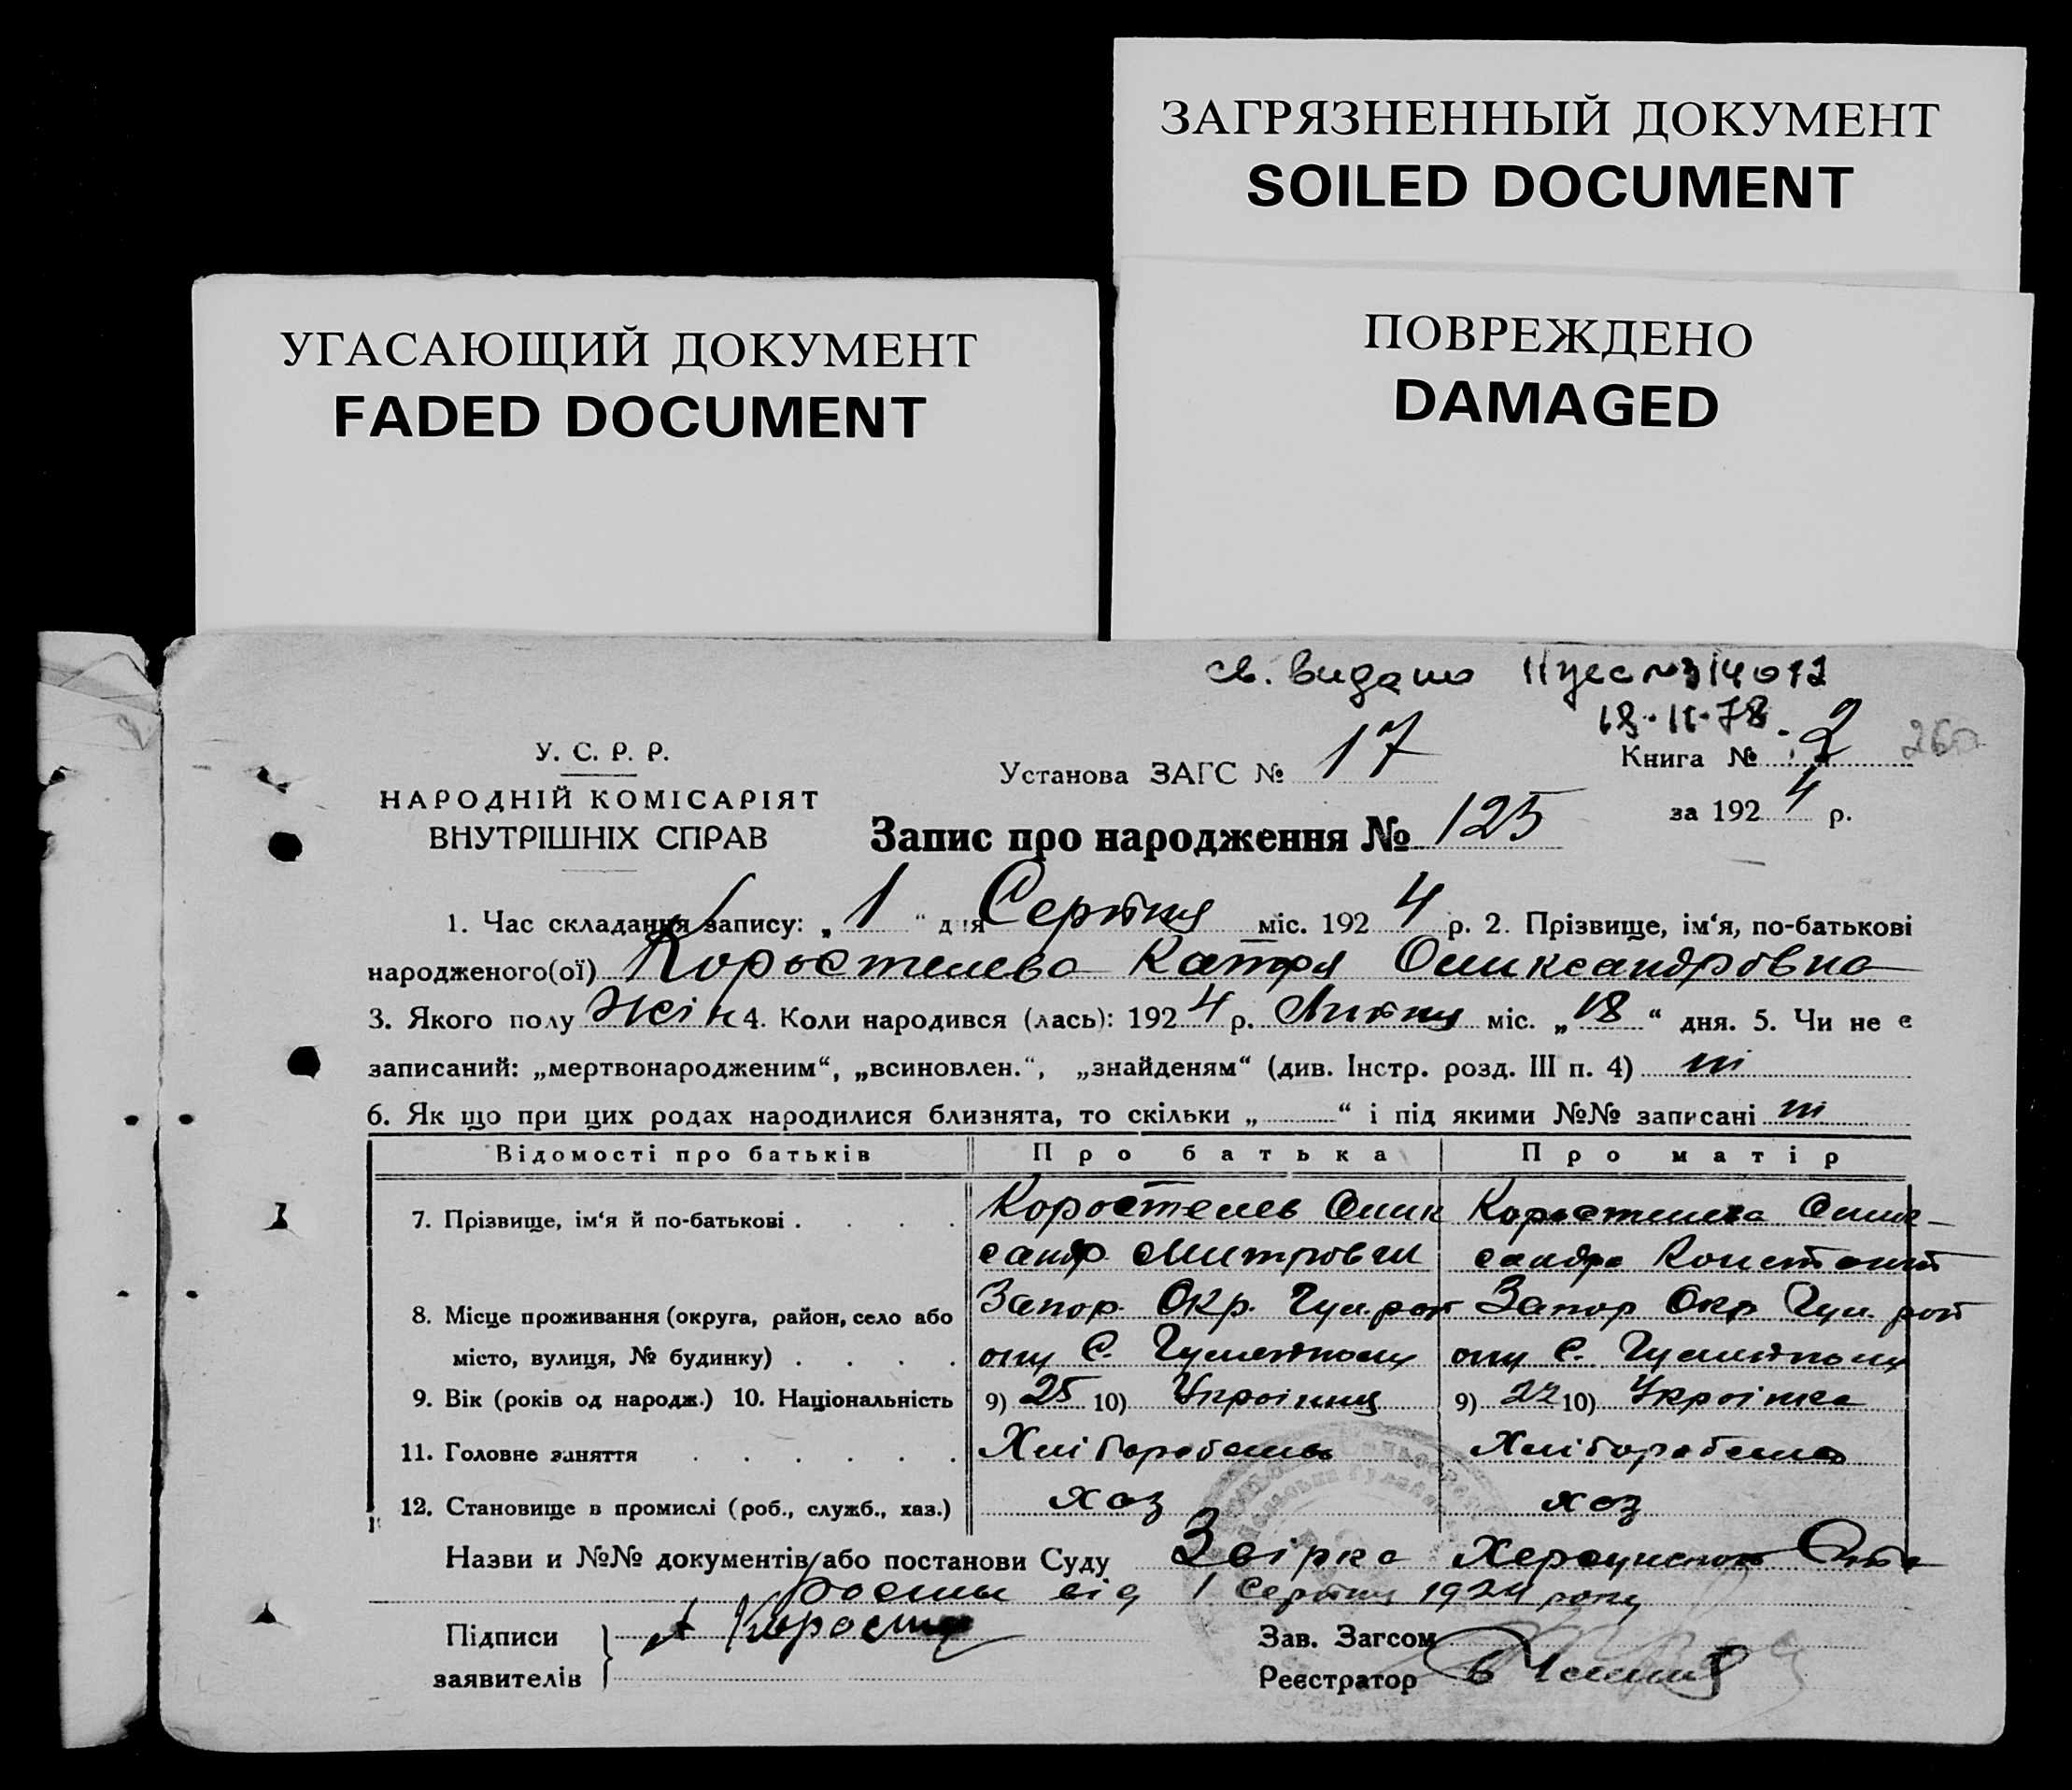 ЗАГРЯЗНЕННЫЙ ДОКУМЕНТ
SOILED DOCUMENT
УГАСАЮЩИЙ ДОКУМЕНТ
FADED DOCUMENT
ПОВРЕЖДЕНО
DAMAGED
св. видано
18-II-78
260
У. С. Р. Р.
НАРОДНІЙ КОМІСАРІЯТ
ВНУТРІШНІХ СПРАВ
Установа ЗАГС № 17
Книга № 2
за 1924 р.
Запис про народження № 125
1. Час складання запису: „ 1 “ дня Серпня міс. 1924 р. 2. Прізвище, ім‘я, по-батькові
народженого(ої) Коростелева Катря Олександровна
3. Якого полу жін 4. Коли народився (лась): 1924 р. Липня міс. „ 18 “ дня. 5. Чи не є
записаний: „мертвонародженим“, „всиновлен.“, „знайденям“ (див. Інстр. розд. III п. 4) ні
6. Як що при цих родах народилися близнята, то скільки „ “ і під якими №№ записані ні
Відомості про батьків Про батька Про матір
7. Прізвище, ім‘я й по-батькові . . . . Коростелев Олик Коростелева Олик-
сандр Митров сандра Констант
8. Місце проживання (округа, район, село або Запор. Окр. Гул. рай Запор Окр Гул. рай
місто, вулиця, № будинку) . . . . ону С. Гуляйполя ону С. Гуляйполя
9. Вік (років од народж.) 10. Національність 9) 25 10) Українец 9) 22 10) Українка
11. Головне заняття . . . . . . Хліборобство Хліборобство
12. Становище в промислі (роб., служб., хаз.) хаз хаз
Назви и №№ документів або постанови Суду Звірка
від 1 Серпня 1924 року
Підписи
заявителів
Зав. Загсом
Реєстратор